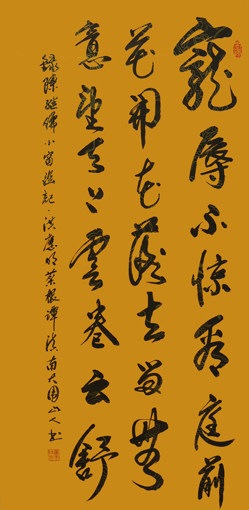 寵辱不惊看庭前
花開花落去留無
意望天上雲卷云舒
録陳继儒小窗幽記·洪應明菜根譚滇南大围山人书